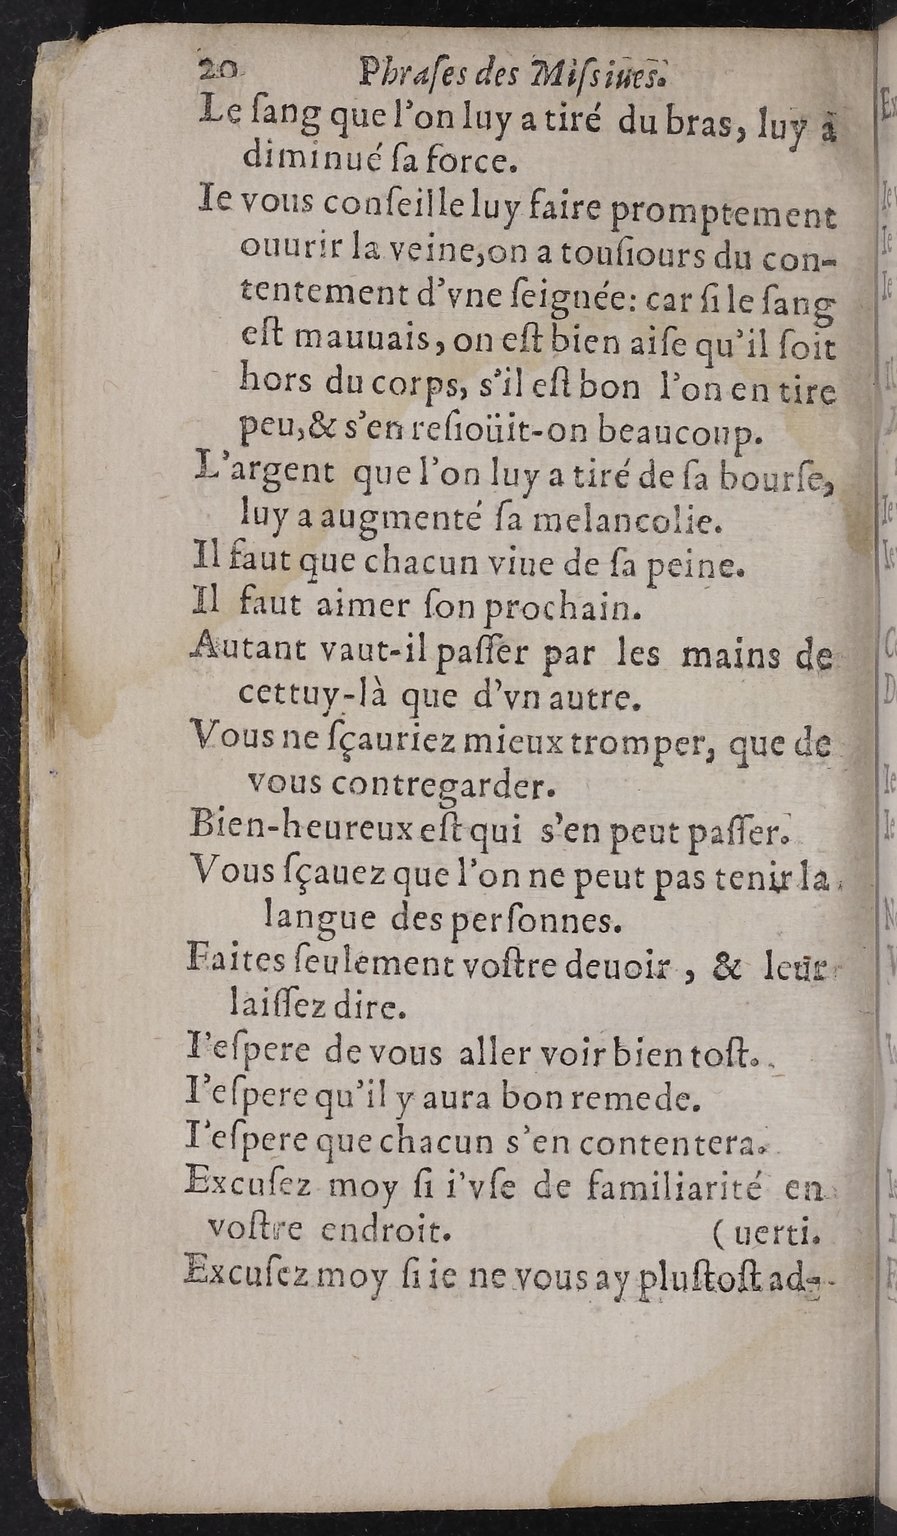 20 Phraſes des Miſsiues.
Le ſang que l'on luy a tiré du bras, luy a
diminué ſa force.
Ie vous conſeille luy faire promptement
ouurir la veine, on a touſiours du con-
tentement d'vne ſeignée: car ſi le ſang
eſt mauuais, on eſt bien aiſe qu'il ſoit
hors du corps, s'il eſt bon l'on en tire
peu, & s'en reſioüit-on beaucoup.
L'argent que l'on luy a tiré de ſa bourſe,
luy a augmenté ſa melancolie.
Il faut que chacun viue de ſa peine.
Il faut aimer ſon prochain.
Autant vaut-il paſſer par les mains de
cettuy-là que d'vn autre.
Vous ne ſçauriez mieux tromper, que de
vous contregarder.
Bien-heureux eſt qui s'en peut paſſer.
Vous ſçauez que l'on ne peut pas tenir la
langue des perſonnes.
Faites ſeulement voſtre deuoir, & leur
laiſſez dire.
I'eſpere de vous aller voir bien toſt.
I'eſpere qu'il y aura bon remede.
I'eſpere que chacun s'en contentera.
Excuſez moy ſi i'vſe de familiarité en
voſtre endroit. (uerti.
Excuſez moy ſi ie ne vous ay pluſtoſt ad-